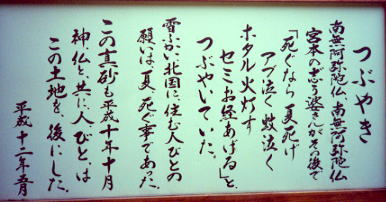 つぶやき
南無阿弥陀仏 南無阿弥陀仏
宮本の志う婆さんがその後で
「死ぐなら夏死げ
アブ泣く蚊泣く
ホタル火灯す
セミお経あげる」と
つぶやいていた。
雪ふかい北国に住む人びとの
願いは、夏、死ぐ事であった。
この真砂も平成十年十月
神、仏と、共に人びとは
この土地を、後にした。
平成十二年五月